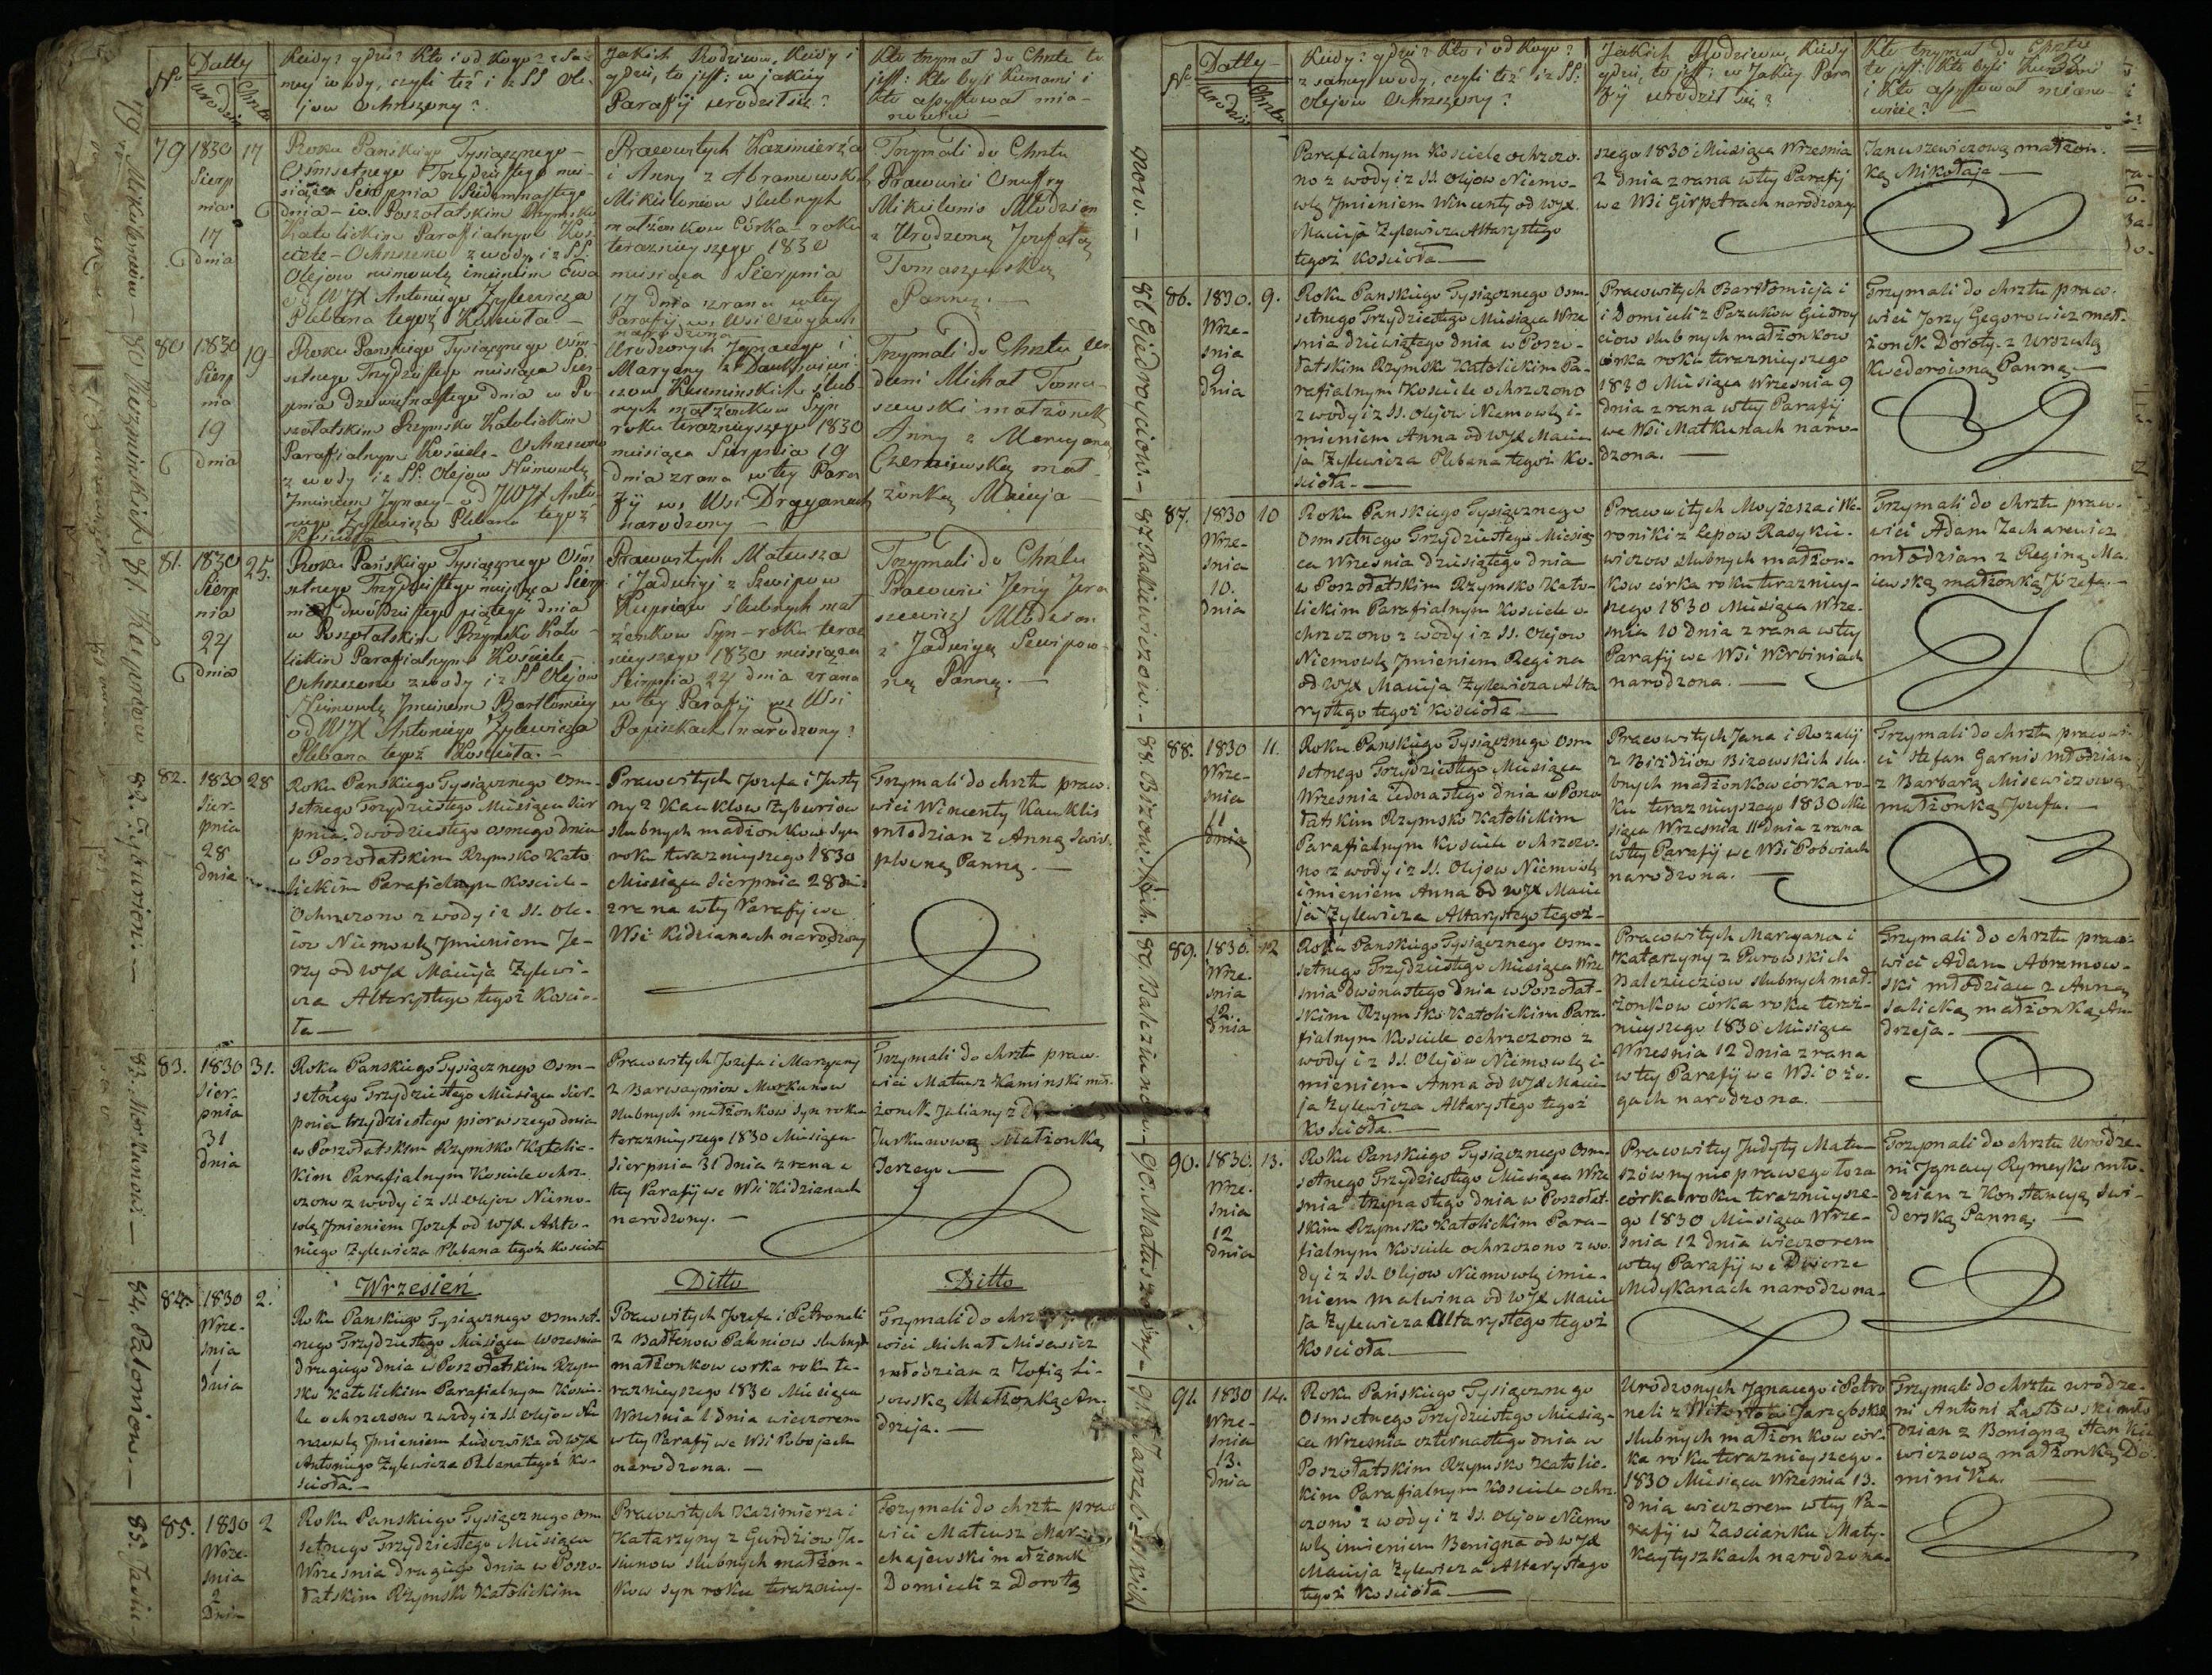 Nr
Datty
urodzin
Chrztu
Kiedy? gdzie? Kto i od Kogo? z Sa-
mey wody, czyli też i z SS Ole-
jow ochrzszony?
Jakich Rodziców, Kiedy i
gdzie, to jest: w jakiey
Parafij urodził się?
Kto trzymał do Chrztu to
jest: Kto byli Kumami i
Kto assystował mia-
nowicie
79
1830
Sierp
nia
17
dnia
17
Roku Pańskiego Tysiącznego
Ośmsetnego Trzydziestego mie-
siąca Sierpnia Siedemnastego
dnia - w Poszołatskim Rzymsko
Katolickim Parafialnym Koś-
ciele - Ochrzszono z wody i z SS.
Olejow niemowle imieniem Ewa
od WJX Antoniego Zylewicza
Plebana tegoż Kościoła -
Pracowitych Kazimierza
i Anny z Abramowskich
Mikulonisow ślubnych
małżonkow Córka - roku
teraznieyszego 1830
miesiąca Sierpnia
17 dnia zrana w tey
Parafij we Wsi Ożogach
narodzona
Trzymali do Chrztu
Pracowici Onufry
Mikulonis Młodzian
z Urodzoną Jozefatą
Tomaszewską
Panną. -
80
1830
Sierp
nia
19
dnia
19
Roku Panskiego Tysiącznego Ośm-
setnego Trzydziestego miesiąca Sier-
pnia Dziewiętnastego dnia w Po-
szołatskim Rzymsko Katolickim
Parafialnym Kościele - Ochrzszono
z wody i z SS. Olejow Niemowle
Imieniem Jgnacy - od JWJX Anto-
niego Zylewicza Plebana tegoż
Kościoła
Urodzonych Jgnacego i
Maryany z
Kuzminskich ślub-
nych małżonkow Syn
roku teraznieyszego 1830
miesiąca Sierpnia 19
dnia zrana w tey Para
fij we Wsi Draganach
narodzony -
Trzymali do Chrztu Ur.
dzeni Michał Toma-
szewski małżonek
Anny z Maryanną
Czerniewską mał-
żonką Macieja -
81.
1830
Sierp
nia
24
dnia
25.
Roku Pańskiego Tysiącznego Ośm
setnego Trzydziestego miesiąca Sierp
nia dwódziestego piątego dnia
w Poszołatskim Rzymsko Kato-
lickim Parafialnym Kościele -
Ochrzczono z wody i z SS Olejow
Niemowle Jmieniem Bartłomiey
od WJX Antoniego Zylewicza
Plebana tegoż Kościoła. -
Pracowitych Mateusza
i Jadwigi z Szewipow
ślubnych mał
żonkow Syn - roku teraz
nieyszego 1830 miesiąca
Sierpnia 24 dnia zrana
w tey Parafij we Wsi
Papiszkach narodzony?
Trzymali do Chrztu
Pracowici Jerży Jera
szewicz Młodzian
z Jadwigą Szewipow-
ną Panną. -
82.
1830
Sier-
pnia
28
dnia
28
Roku Panskiego Tysiącznego Osm-
setnego Trzydziestego Miesiąca Sier
pnia dwodziestego osmego dnia
w Poszołatskim Rzymsko Kato
lickim Parafialnym Kosciele-
Ochrzczono z wody i z SS. Ole-
iow Niemowle Jmieniem Je-
rzy od WJX Macieja Zylewi-
cza Altarystego tegoż Koscio-
ła -
Pracowitych Jozefa i Justy
ny z Kauklow Zyburiow
slubnych małżonkow Syn
roku teraznieyszego 1830
Miesiąca Sierpnia 28 dnia
zrana w tey Parafij we
Wsi Kidzianach narodzony
Trzymali do chrztu praco-
wici Wincenty Kauklis
młodzian z Anną Swis-
plowną Panną. -
83.
1830
Sier-
pnia
31
dnia
31.
Roku Panskiego Tysiącznego Osm-
setnego Trzydziestego Miesiąca Sier-
pnia trzydziestego piorwszego dnia
w Poszołatskim Rzymsko Katolic-
kim Parafialnym Kosciele ochrz-
czono z wody i z SS Olejow Niemo-
wle Jmieniem Jozef od WJX Anto-
niego Zylewicza Plebana tegoż Kościoła
Pracowitych Jozefa i Maryany
z Barwayniow Morkunow
slubnych małżonkow Syn roku
teraznieyszego 1830 Miesiąca
Sierpnia 31 dnia zrana w
tey Parafij we Wsi Kidzianach
narodzony. -
Trzymali do chrztu praco-
wici Mateusz Kaminski mał-
żonek Juliany z
Jurkunową Małżonką
Jerzego. -
84.
1830
Wrze-
snia
1
dnia
2.
Wrzesień
Roku Panskiego Tysiącznego osmset-
nego Trzydziestego Miesiąca wrzesnia
drugiego dnia w Poszołatskim Rzym-
sko Katolickim Parafialnym Kosci-
le ochrzczono z wody i z SS Olejow Nie
mowle Jmieniem Ludowika od WJX
Antoniego Zylewicza Plebana tegoż Ko-
scioła. -
Ditto
Pracowitych Jozefa i Petroneli
z Bałtenow Paloniow slubnych
małżonkow corka roku te-
raznieyszego 1830 Miesiąca
Wrzesnia 1 dnia wieczorem
w tey Parafij we Wsi Pobojach
narodzona. -
Ditto
Trzymali do chrztu
wici Michał Misewicz
młodzian z Zofią Li-
sowską Małżonką An-
drzeja. -
85.
1830
Wrze-
snia
2
Dnia
2
Roku Panskiego Tysiącznego osm
setnego Trzydziestego Miesiąca
Wrzesnia drugiego dnia w Poszo-
łatskim Rzymsko Katolickim
Pracowitych Kazimierza i
Katarzyny z Gurdziow Ja-
siunow slubnych małżon-
kow syn roku terazniey-
Trzymali do chrztu praco
wici Mateusz Mar-
chajewski małżonek
Domiceli z Dorotą
79 Mikulonisow -
81.
82. Zyburiow. -
83. Morkunow -
84. Paloniow. -
85. Jasiu-
Nr
Datty -
urodzin
Chrztu
Kiedy? gdzie? Kto i od Kogo?
z samey wody, czyli też i z SS.
Olejow ochrzszony?
Jakich Rodziców, Kiedy
gdzie, to jest: w Jakiey Para
fij urodził się?
Kto trzymał do Chrztu
to jest: Kto byli Kumami
i Kto assystował miano-
wicie? -
38
Parafialnym Kosciele ochrzczo-
no z wody i z SS. Olejow Niemo-
wle Jmieniem Wincenty od WJX.
Macieja Zylewicza Altarystego
tegoż Koscioła -
szego 1830 Miesiąca Wrzesnia
2 dnia zrana w tey Parafij
we Wsi Girpetrach narodzony
Januszewiczową małżon-
ką Mikołaja -
86.
1830.
Wrze-
snia
9
dnia
9.
Roku Panskiego Tysiącznego Osm-
setnego Trzydziestego Miesiąca Wrze
snia dziewiątego dnia w Poszo-
łatskim Rzymsk Katolickim Pa-
rafialnym Kosciele ochrzczono
z wody i z SS. Olejow Niemowle i-
mieniem Anna od WJX Macie
ja Zylewicza Plebana tegoż Ko-
scioła. -
Pracowitych Bartłomieja i
i Domiceli z Pozukow Giedroy
ciow slubnych małżonkow
córka roku teraznieyszego
1830 Miesiąca Wrzesnia 9
dnia zrana w tey Parafij
we Wsi Małkunach naro-
dzona. -
Trzymali do chrztu praco-
wici Jerzy Gegorowicz mał-
żonek Doroty. z Urszulą
Kwederówną Panną. -
87.
1830
Wrze-
snia
10.
dnia
10
Roku Panskiego Tysiącznego
Osmsetnego Trzydziestego Miesią
ca Wrzesnia dziesiątego dnia
w Poszołatskim Rzymsko Kato-
lickim Parafialnym Kosciele o-
chrzczono z wody i z SS. Olejow
Niemowle Jmieniem Regina
od WJX Macieja Zylewicza Alta
rystego tegoż Koscioła -
Pracowitych Moyżesza i We-
roniki z Lepow Rasyki-
wiczow slubnych małżon-
kow córka roku teraźniey-
szego 1830 Miesiąca Wrze-
snia 10 dnia zrana w tey
Parafij we Wsi Wirbiniach
narodzona. -
Trzymali do chrztu praco-
wici Adam Zacharewicz
młodzian z Reginą Ma-
iewską małżonką Józefa. -
88.
1830
Wrze-
snia
11
dnia
11.
Roku Panskiego Tysiącznego Osm
setnego Trzydziestego Miesiąca
Wrzesnia iednastego dnia w Poszo
łatskim Rzymsko Katolickim
Parafialnym Kosciele ochrzczo-
no z wody i z SS. Olejow Niemowle
imieniem Anna od WJX Macie
ja Zylewicza Altarystego tegoż -
Pracowitych Jana i Rozalij
z Biździow Bizowskich slu-
bnych małżonkow córka ro-
ku teraznieyszego 1830 Mie
siąca Wrzesnia 11 dnia zrana
w tey Parafij we Wsi Poboiach
narodzona. -
Trzymali do chrztu pracowi-
ci Stefan Garnis młodzian
z Barbarą Misewiczową
małżonką Jozefa. -
89.
1830.
Wrze-
snia
12.
dnia
12
Roku Panskiego Tysiącznego Osm-
setnego Trzydziestego Miesiąca Wrze
snia Dwónastego dnia w Poszołat-
skim Rzymsko Katolickim Para-
fialnym Kosciele ochrzczono z
wody i z SS. Olejow Niemowle i-
mieniem Anna od WJX Macie
ja Zylewicza Altarystego tegoż
Koscioła. -
Pracowitych Maryana i
Katarzyny z Purowskich
slubnych mał-
żonkow córka roku teraź-
nieyszego 1830 Miesiąca
Wrzesnia 12 dnia zrana
w tey Parafij we Wsi Ożo-
gach narodzona. -
Trzymali do chrztu praco-
wici Adam Abramow-
ski młodzian z Anną
Salicką małżonką An-
drzeja. -
90.
1830.
Wrze-
snia
12
dnia
13.
Roku Panskiego Tysiącznego Osm-
setnego Trzydziestego Miesiąca Wrze
snia trzynastego dnia w Poszołat-
skim Rzymsko Katolickim Para-
fialnym Kosciele ochrzczono z wo-
dy i z SS. Olejow Niemowle imie-
niem Malwina od WJX Macie
ja Zylewicza Altarystego tegoż
Koscioła. -
Pracowitey Judyty Matu-
szówny nie prawego łoża
córka roku teraznieysze-
go 1830 Miesiąca Wrze-
snia 12 dnia wieczorem
w tey Parafij we Dworze
Medykanach narodzona -
Trzymali do chrztu Urodze-
ni Jgnacy Rymeyko mło-
dzian z Konstancyą Swi-
derską Panną. -
91.
1830
Wrze-
snia
13.
dnia
14.
Roku Pańskiego Tysiącznego
Osmsetnego Trzydziestego Miesią-
ca Wrzesnia czternastego dnia w
Poszołatskim Rzymsko Katolic-
kim Parafialnym Kosciele ochrz-
czono z wody i z SS. Olejow Niemo
wle imieniem Benigna od WJX
Macieja Zylewicza Altarystego
tegoż Koscioła -
Urodzonych Jgnacego i Petro
neli z Witortow Jarzębskich
slubnych małżonkow cór-
ka roku teraznieyszego
1830 Miesiąca Wrzesnia 13.
dnia wieczorem w tey Pa-
rafij w Zascianku Maty-
kaytyszkach narodzona.
Trzymali do chrztu urodze-
ni Antoni Lasłowski mło
dzian z Benigną Han
wiczową małżonką Do-
minika.
now. -
86 Giedroyciow. -
88. Bizowskich.
90. Matuszówny -
91. Jarzębskich